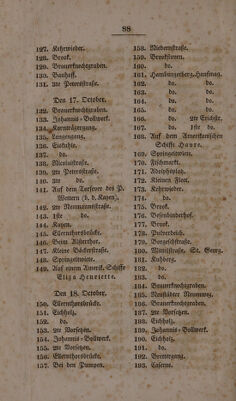 88
127. Kehrwieder.
128. Brook.
129. Brauerknechtgraben.
130. Bauhof.
131. 3te Petersstraße.
Den 17. October.
132. Brauerknechtgraben.
133. Johannis-Bollwerk.
134. Kornträgergang.
135. Langergang.
136. Eichholz.
137. do.
138. Nicolaistraße.
139. 2te Petersstraße.
140. 3te do.
141. Auf dem Torfever des P.
142. 2te Neumannstraße.
143. 1ste do.
144. Kajen.
145. Ellernthorsbrücke.
146. Beim Alsterthor.
147. Kleine Bäckerstraße.
148. Springeltwiete.
149. Auf einem Amerik. Schiffe
Eliza Henriette.
Den 18. October.
150. Ellernthorsbrücke.
151. Eichholz.
152. do.
153. 2te Vorsetzen.
154. Johannis-Bollwerk.
155. 2te Vorsetzen.
156. Ellernthorsbrücke.
157. Bei den Pumpen.
158. Niedernstraße.
159. Brooksthören.
160. do. do.
161. Hamburgerberg
162. do. do.
163. do. do.
164. do. do.
165. do. do.
166. do. do.
167. do. do.
168. Auf dem Amerikanischen
Schiffe Havre.
169. Springeltwiete.
170. Fischmarkt.
171. Adolphsplatz.
172. Kleinen Fleet.
173. Kehrwieder.
174. do.
175. Brook.
176. Besenbinderhof.
177. Brook.
178. Pickerdeich.
179. Borgeschstraße.
181. Kuhberg.
182. do.
183. do.
184. Brauerknechtgraben.
185. Neustädter Neuerweg.
186. Brauerknechtgraben.
187. 2te Vorsetzen.
188. Eichholz.
189. Johannis-Bollwerk.
190. Eichholz.
191. do.
192. Herrengang.
193. Caserne.